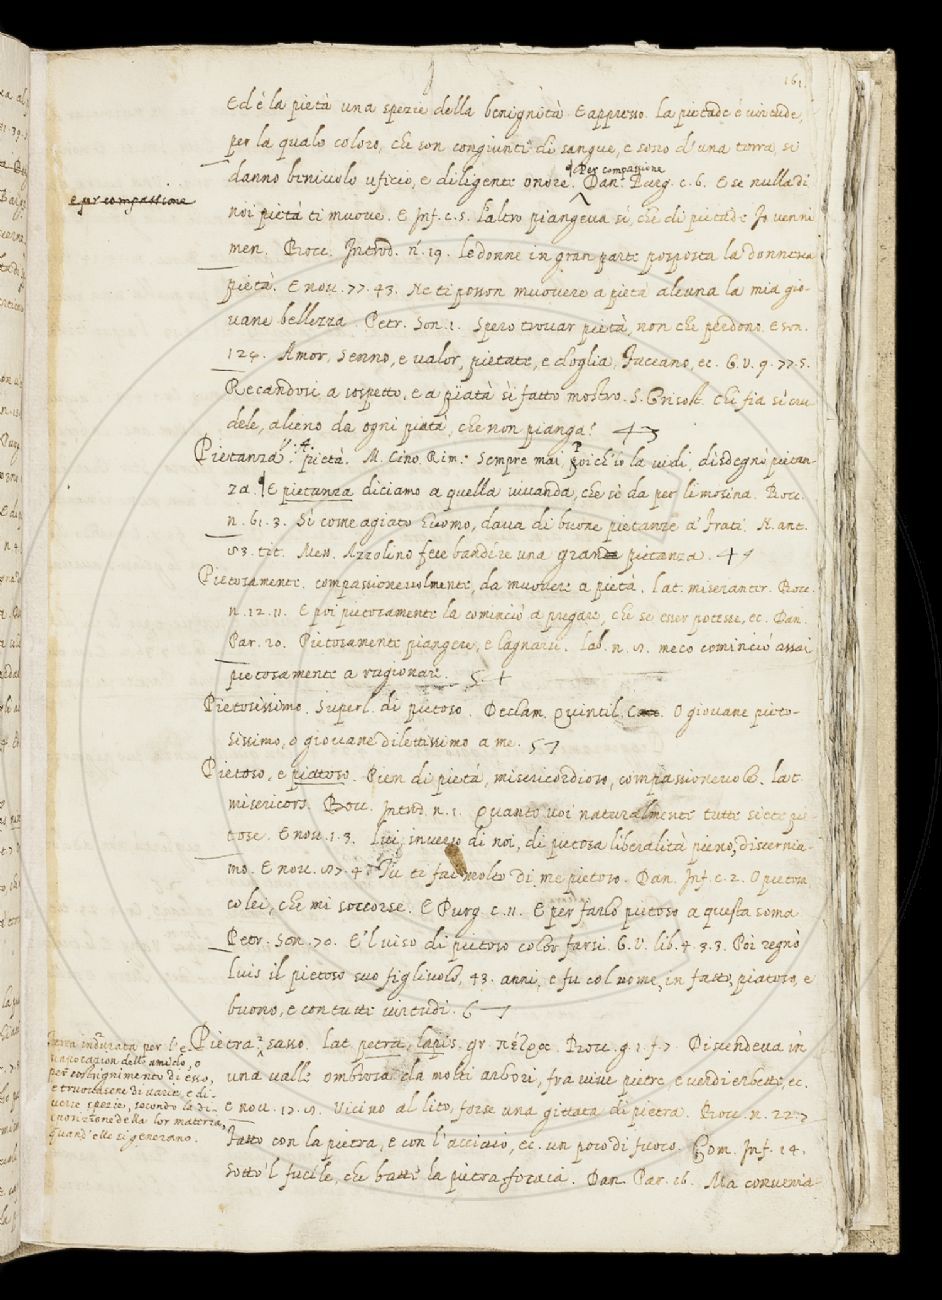 161.
Ed è la pietà una spezie della benignità. E appresso. La pietade è virtude,
per la quale coloro, che son congiunti di sangue, e sono d'una terra, si
danno benivolo uficio, e diligente onore. Per compassione Dan. Purg. c. 6. E se nulla di
e per compassione
noi pietà ti muove. E Inf. c. 5. L'altro piangeva sì, che di pietade Io venni
men. Bocc. Introd. n. 19. Le donne in gran parte posposta la donnesca
pietà. E nov. 77. 43. Ne ti posson muovere a pietà alcuna la mia gio-
vane bellezza. Petr. Son. 1. Spero trovar pietà, non che perdono. E son.
124. Amor, Senno, e valor, pietate, e doglia, Faceano, ec. G. V. 9. 77. 5.
Recandosi a sospetto, e a piatà sì fatto mostro. S. Grisost. Chi fia sì cru
dele, alieno da ogni piatà, che non pianga?
Pietanza. pietà. M. Cino Rim. Sempre mai poich'io la vidi, disdegnò pietan-
za. E pietanza diciamo a quella vivanda, che si da per limosina. Bocc.
n. 61. 3. Sì come agiato huomo, dava di buone pietanze a' frati. N. ant.
83. tit. Mess. Azzolino fece bandire una grande pietanza.
Pietosamente. compassionevolmente, da muovere a pietà. Lat. miseranter. Bocc.
n. 12. 11. E poi pietosamente la cominciò a pregare, che se esser potesse, ec. Dan.
Par. 20. Pietosamente piangere, e lagnarsi. Lab. n. meco cominciò assai
pietosamente a ragionare. 5.
Pietosissimo. Superl. di pietoso. Declam. Quintil. O giovane pieto-
sissimo, o giovane dilettissimo a me. 5
Pietoso, e piatoso. Pien di pietà, misericordioso, compassionevole. Lat.
misericors. Bocc. Introd. n. 1. Quanto voi naturalmente tutte siete pie-
tose. E nov. 1. 3. Lui, inverso di noi, di pietosa liberalità pieno, discernia-
mo. E nov. 87. 4. Tu ti fai molto di me pietoso. Dan. Inf. c. 2. O pietosa
colei, che mi soccorse. E Purg. c. 11. E per farlo pietoso a questa soma
Petr. Son. 70. E 'l viso di pietoso color farsi. G. V. lib. 4. 3. 3. Poi regnò
Luis il pietoso suo figliuolo, 43. anni, e fu col nome, in fatto, piatoso, e
buono, e con tutte virtudi. 6
Terra indurata per l'e-
vaporazion dell'umido, o
per costrignimento di esso,
e truovasene di varie, e di-
verse spezie, secondo la di-
sposizione della lor materia,
quand'elle si generano.
Pietra. sasso. Lat. petra, lapis. gr. πέτρος. Bocc. g. 1. f. 7. Discendeva in
una valle ombrosa da molti arbori, fra vive pietre, e verdi erbette, ec.
e nov. 17. Vicino al lito, forse una gittata di pietra. Bocc. n. 22. 7
Fatto con la pietra, e con l'acciaio, ec. un poco di fuoco. Com. Inf. 14.
Sotto 'l fucile, che batte la pietra focaia. Dan. Par. 26. Ma convenia-